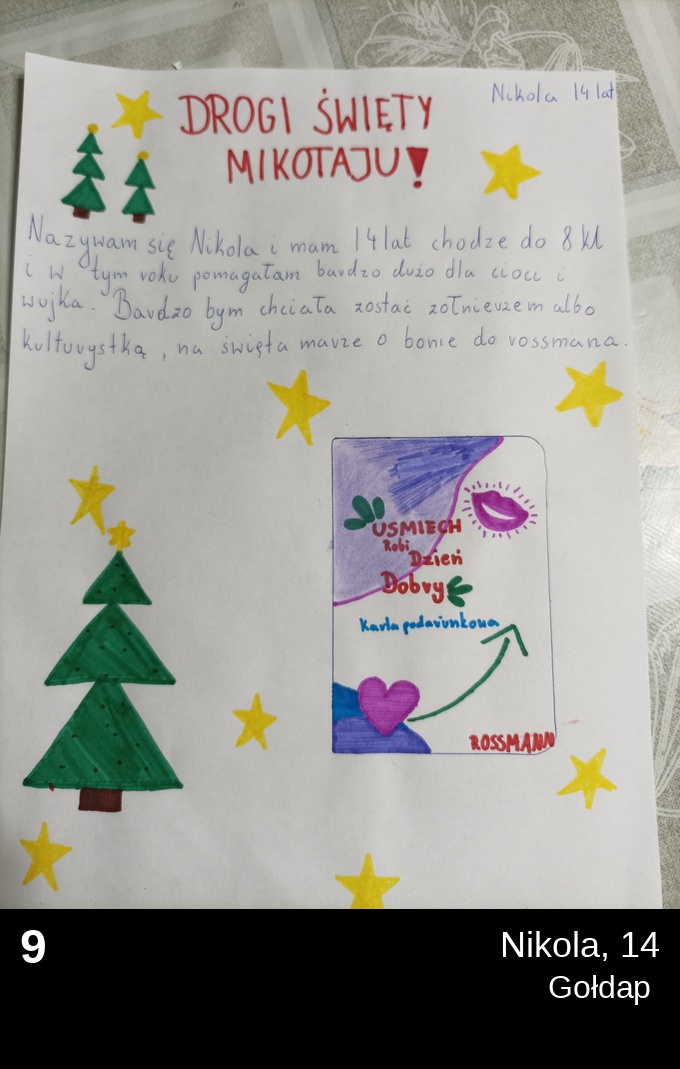 Nikola 14 lat
DROGI ŚWIĘTY
MIKOŁAJU!
Nazywam się Nikola i mam 14 lat chodze do 8 kl
i w tym roku pomagałam bardzo dużo dla cioci i
wujka. Bardzo bym chciała zostać żołnierzem albo
kulturystką, na święta marze o bonie do rossmana.
USMIECH
Robi
Dzień
Dobry
Karta podarunkowa
ROSSMANN
9
Nikola, 14
Gołdap